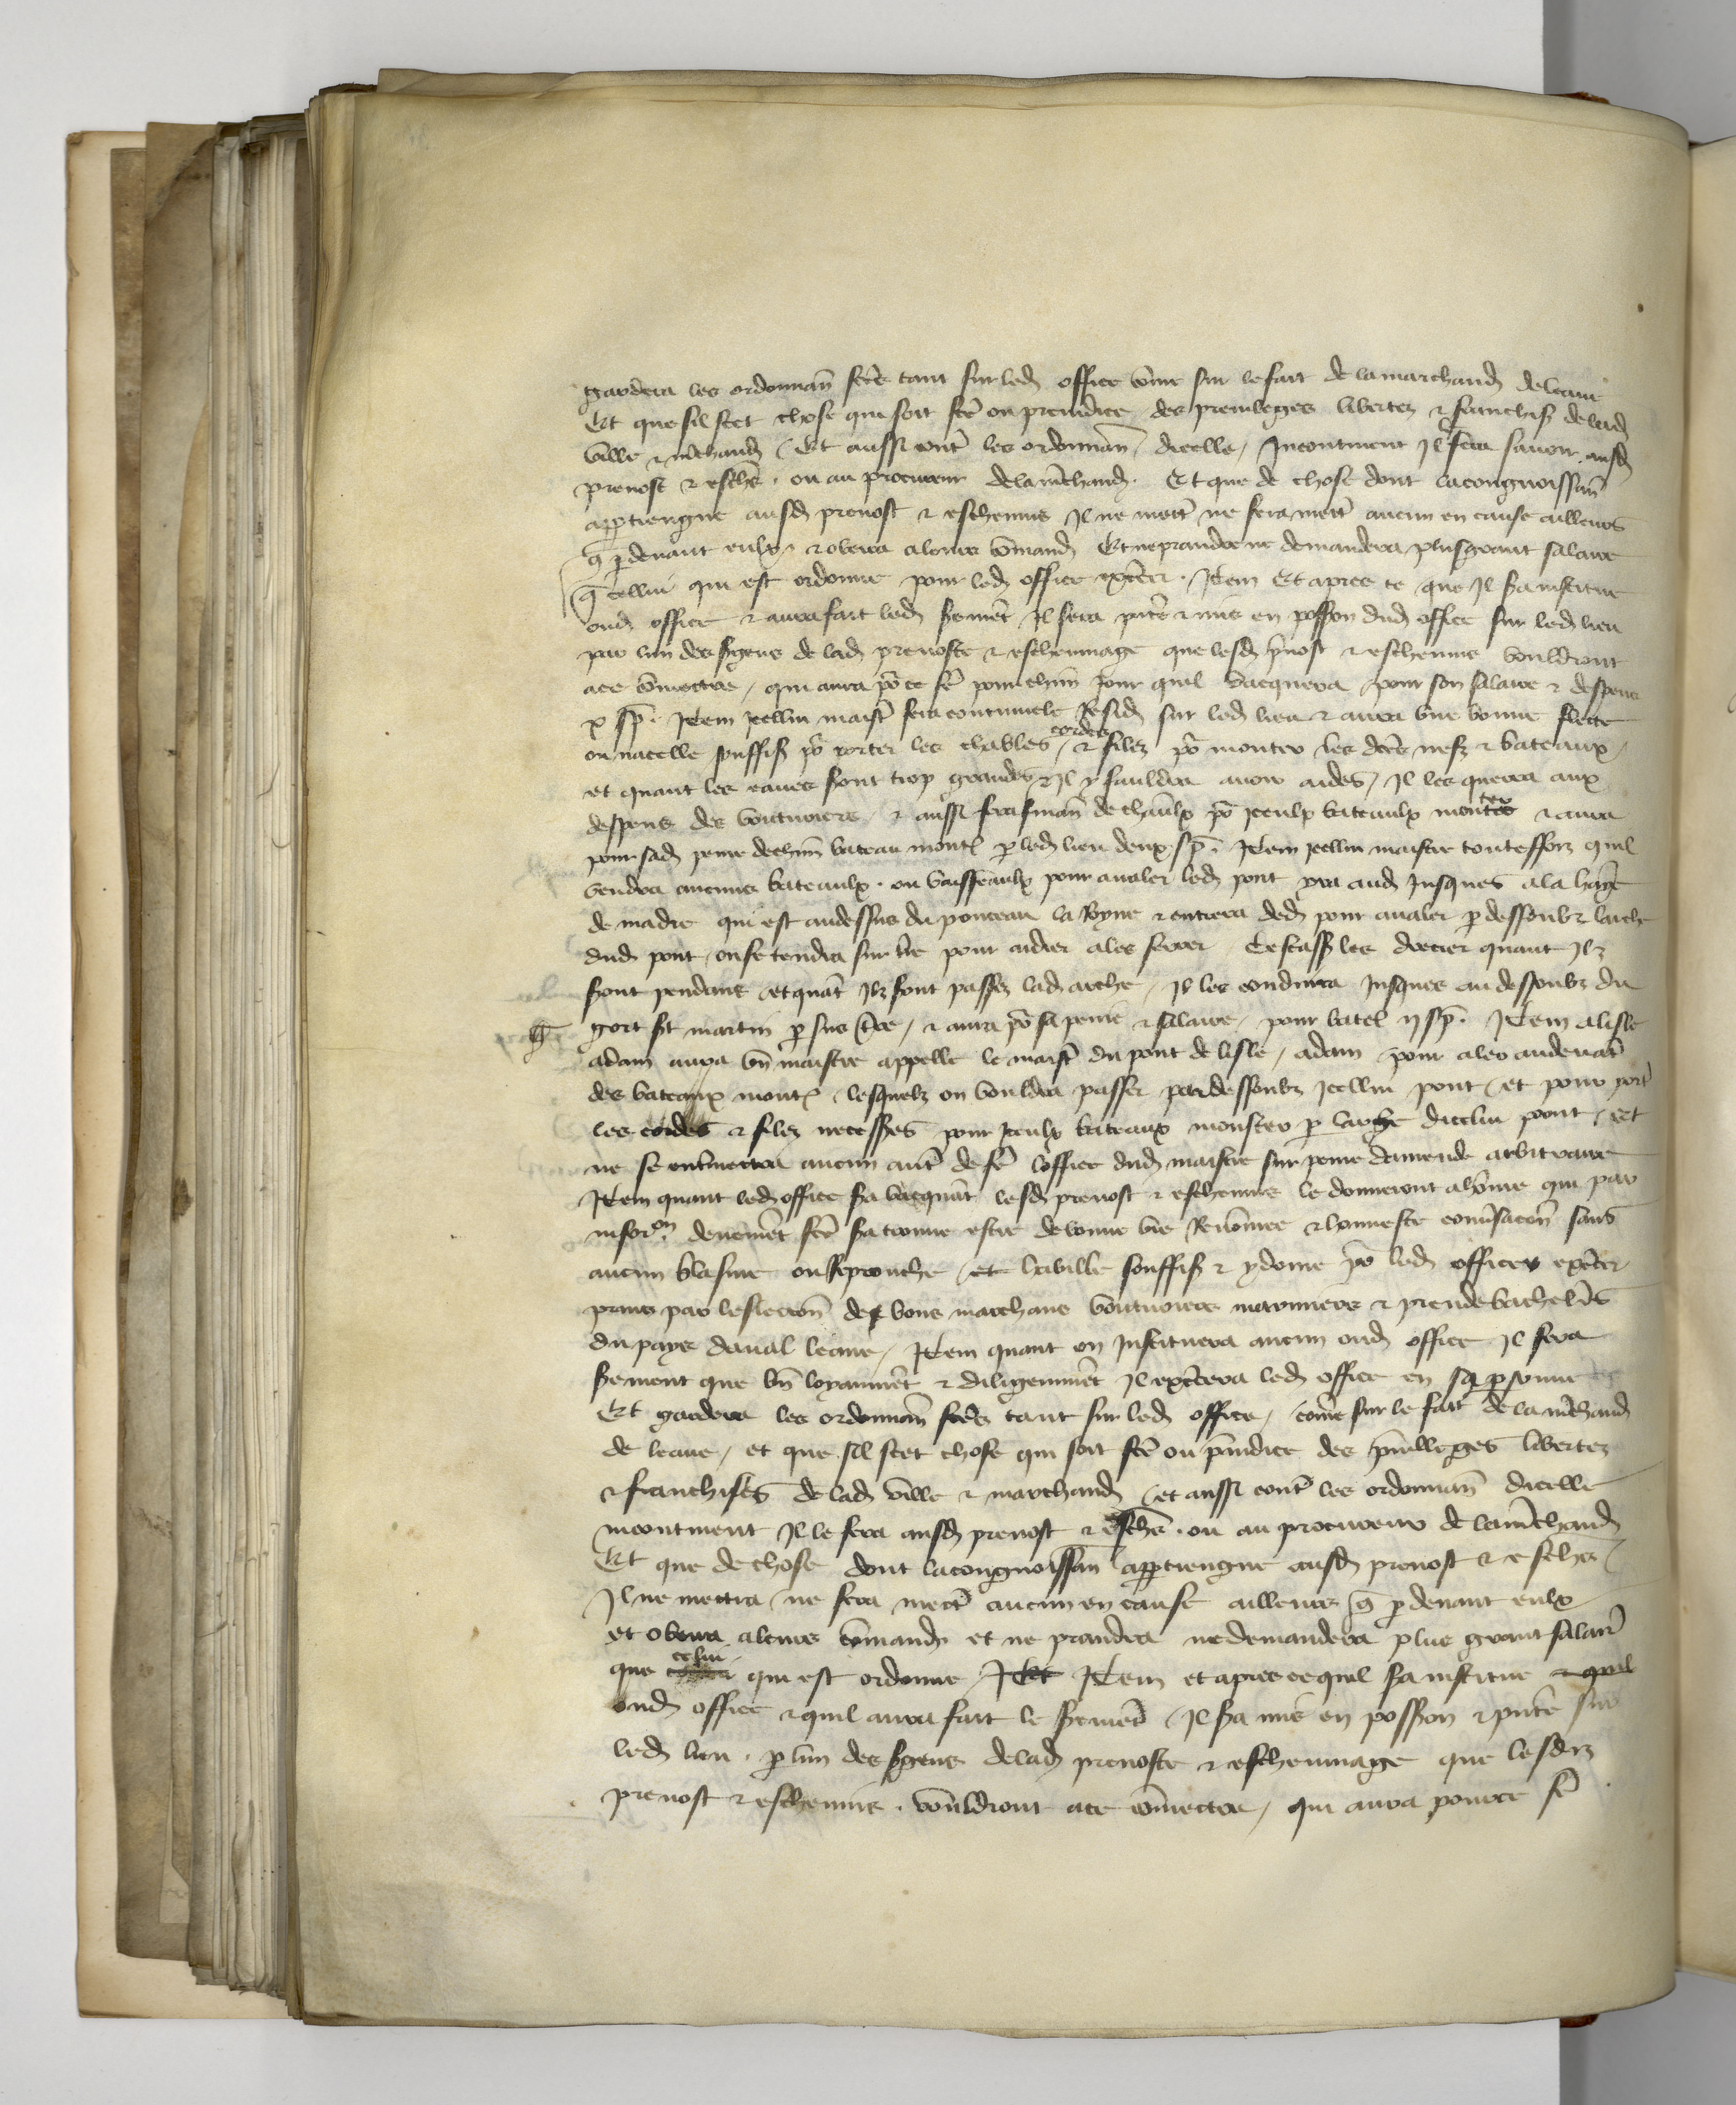 gardera les ordonnan̄ fcēs tant sur led office cōme sur le fait de la marchand de leaue
Et que sil scet chose qui soit fcē ou preiudice des preuileges libertez & franchis de lad
ville & m̄chand Et aussi contr̄ les ordonnan̄ dicelle / Incontinent Il fera sauoir ausd
preuost & escheū . ou au procureur de la m̄chand . Et que de chose dont la congnoissan̄
appartiengne ausd preuost & escheuins Il ne mettr̄ ne fera mettr̄ aucun en cause ailleurs
q̄ p deuant eulx / & obeira a leurs cōmand Et ne prandra ne demandera plus grant salaire
q̄ cellui qui est ordonne pour led office exēcer . Item Et apres ce que Il sa institue
oud office & aura fait led sement Il sera pntē & mis en posson dud office sur led lieu
par lun des sgens de lad preuoste & escheuinage que lesd pūost & escheuins vouldront
ace cōmectre / qui aura po ce fē pour chun Jour quil vacquera pour son salaire & despens
x s p . Item Icellui maistr̄ fera continuele Resid sur led lieu & aura vne bonne flecte
ou nacelle souffis po porter les chables cordes & filez po monter les dcēs nefz & bateaux /
et quant les eaues sont trop grandes & Il y fauldra auoir aides / Il les querra aux
despens des voituriers / & aussi fera finan̄ de chāulx po Iceulx bateaulx monter & aura
pour sad peine de chun bateau mont p led lieu deux s p . Item Icellui maistre toutesfoiz quil
vendra aucuns bateaulx . ou vaisseaulx pour aualer led pont yra aud Jusques a la
de madre qui est audessus du ponceau la Royne & entrera ded pour aualer p dessoubz larche
dud pont / ou se tendra sur lie pour aidier a les les drecier quant Ilz
sont pendans / et quāt Ilz sont passez lad arche / Il les conduira Jusques au dessoubz du
gort st martin p sus / & aura po sa peine & salaire / pour batel ij s p . Item a lisle
adam aura vn maistre appelle le maistr̄ du pont de lisle / adam pour aler audeuāt
des bateaux mont lesquelz on vouldra passer pardessoubz Icellui pont / et pour port̄
les cordes & filez necesses pour Iceulx bateaux monter p larche dicellui pont / et
ne se entremectra aucun autr̄ de fē loffice dud maistre sur peine damende arbitraire
Item quant led office sa vacquāt lesd preuost & escheuins le donneront a hōme qui par
infor.on deuemēt fcē sa trouue estre de bonne vie Renōmee & honneste conūsacon̄ sans
aucun blasme ou Reprouche et habille souffis & ydoine po led office exēcer
prins par leslection̄ des bons marchans voituriers maronniers & prendebachelērs
du pays daual leaue / Item quant on Instituera aucun oud office Il fera
sement que bn̄ loyaumēt & diligemmēt Il exēcera led office en sa psonne
Et gardera les ordonnan̄ fcēs tant sur led office / cōme sur le fait de la m̄chand
de leaue / et que sil scet chose qui soit fcē ou piudice des piuilleges libertez
& franchises de lad ville & marchand / et aussi contr̄ les ordonnan̄ dicelle
incontinent Il le fera ausd preuost & escheū . ou au procureur de la m̄chand
Et que de chose dont la congnoissan̄ appartiengne ausd preuost & escheū
Il ne mettra ne fera mectr̄ aucun en cause ailleurs q̄ p deuant eulx
et obeira aleurs cōmand et ne prandra ne demandera plus grant salair̄
que cellui qui est ordonne Item et apres ce quil sa institue & quil
oud office & quil aura fait le sement Il sa mis en posson & pntē sur
led lieu . p lun des sgens de lad preuoste & escheuinage que lesdiz
preuost & escheuins . vouldront ace cōmectre / qui aura pour ce fē